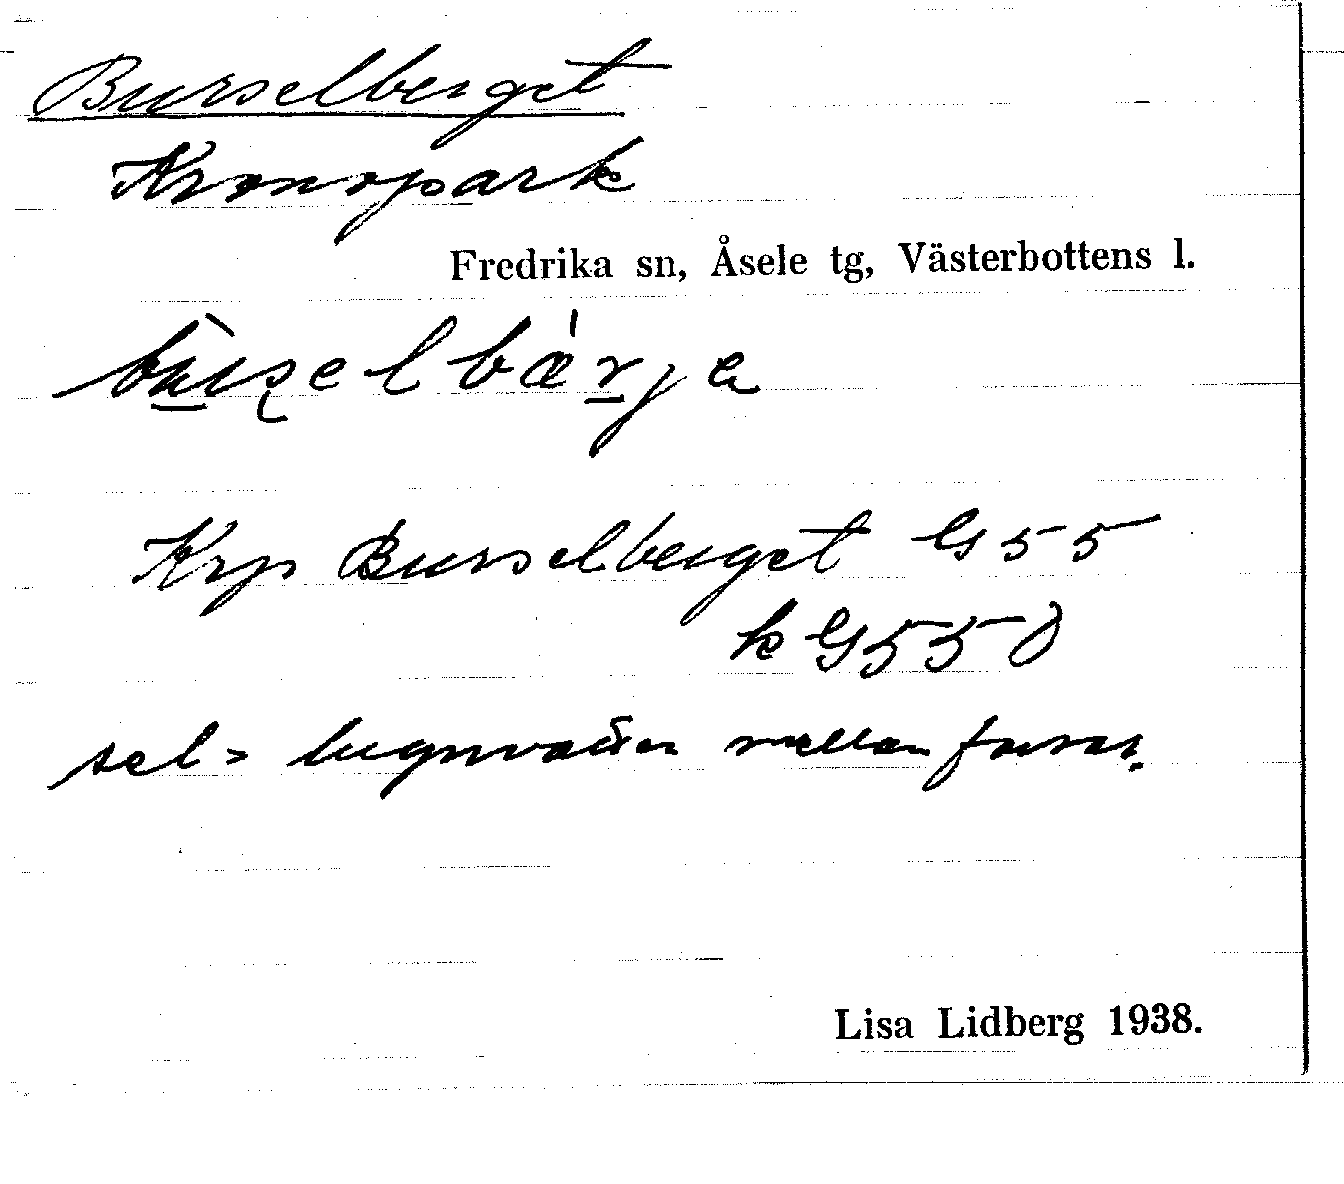 Burselberget
Kronopark
Fredrika sn, Åsele tg, Västerbottens l.
Krp Burselberget G 55
k G 550
sel = lugnvatten mellan forsar.
Lisa Lidberg 1938.